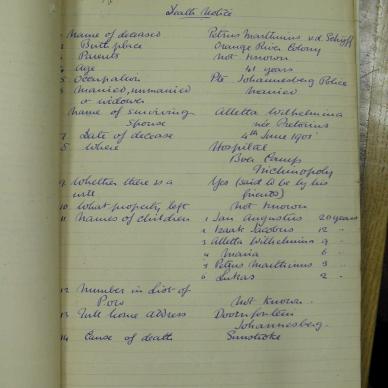 Death Notice
1. Name of deceased Petrus Marthinus v.d. Schyff
2 Birth place Orange River Colony
3 Parents Not known
4 Age 41 years
5 Occupation Pte Johannesberg Police
6 Married, unmarried Married
or widower
Name of surviving Alletta Wilhelmina
Spouse née Pretorius
7. Date of decease 4th June 1901
8. Where Hospital
Boer Camp
Trichnopoly
9. Whether there is a Yes (said to be by his
will friends)
10 What property left Not known
11 Names of children 1 Jan Augustus 20 years
2 Izaak Jacobus 12 "
3 Alletta Wilhelmina 9 "
4 Maria 6 "
5 Petrus Marthinus 3 "
6 Lukas 2 "
12 Number in list of
Pow Not known.
13 Full home address Doornfontein
Johannesberg.
14 Cause of death Sunstroke